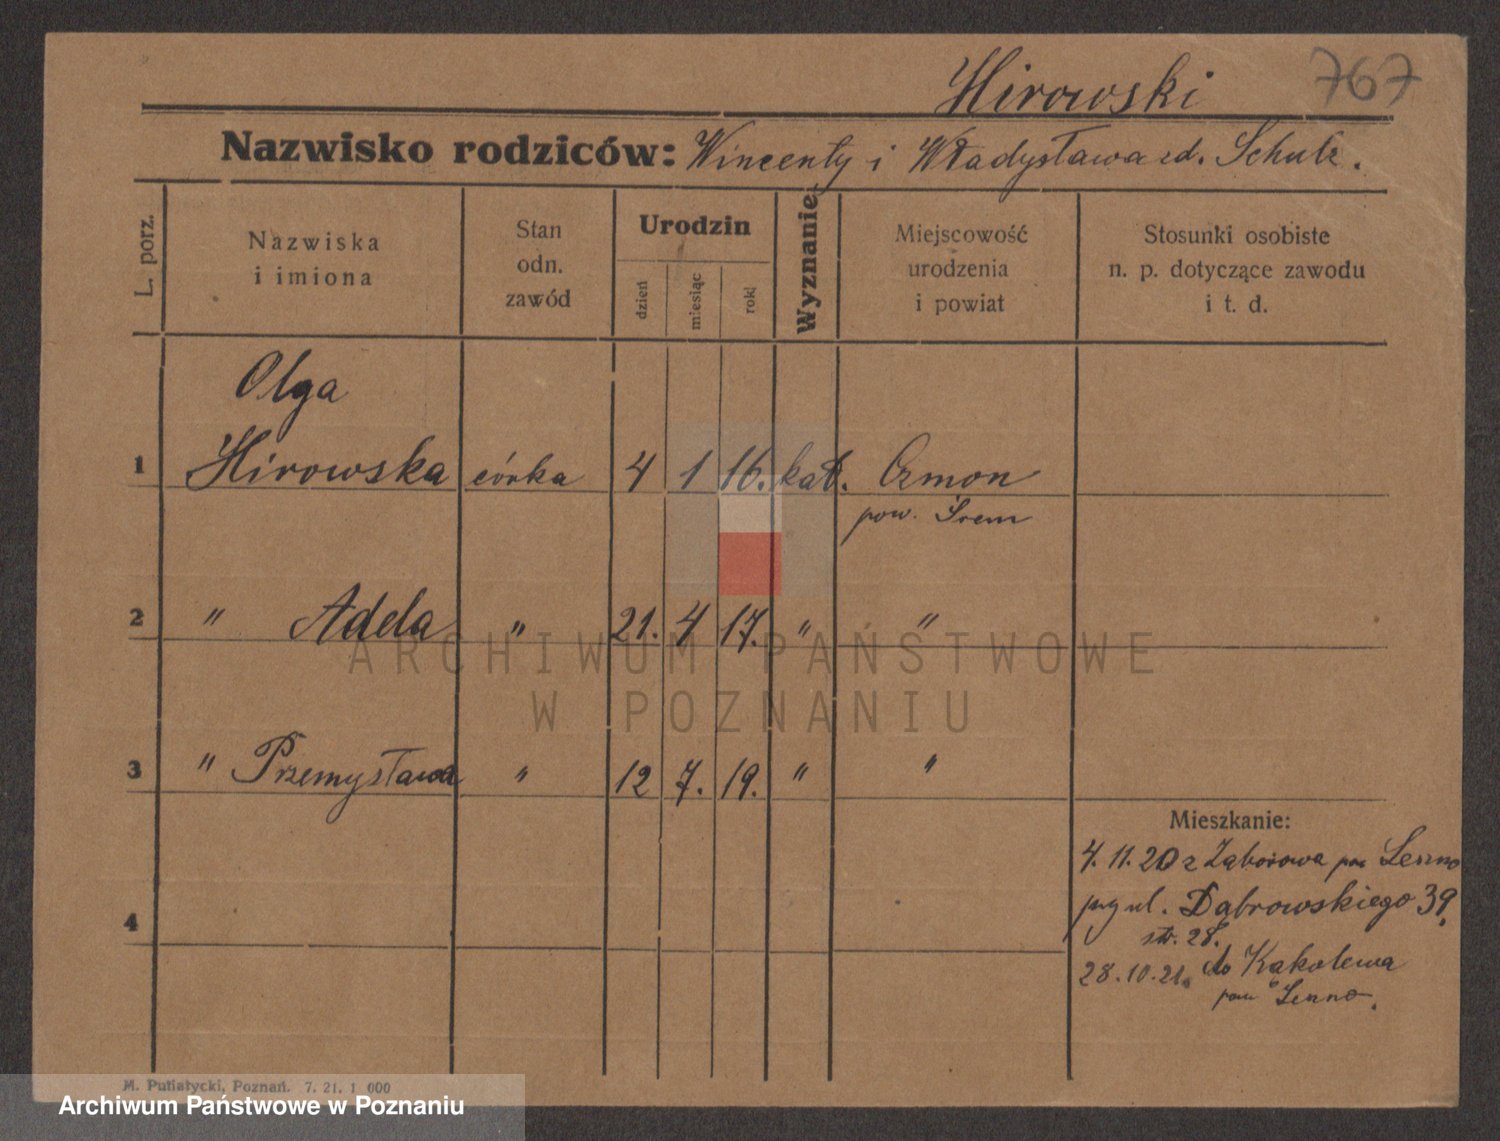 Hirowski 767
Nazwisko rodziców: Wincenty i Władysława zd. Schulz.
L. porz.
Nazwiska
i imiona
Stan
odn.
zawód
Urodzin
dzień
miesiąc
rok
Wyznanie
Miejscowość
urodzenia
i powiat
Stosunki osobiste
n. p. dotyczące zawodu
i t. d.
Olga
1 Hirowska córka 4 1 16. kat. Ozmon
pow. Śrem
2 " Adela " 21. 4 17. " "
3 " Przemysława " 12 7. 19. " "
4
Mieszkanie:
4. 11. 20 z Zaborowa pow Leszno
przy ul. Dąbrowskiego 39,
str. 28.
28.10.21. do Kąkolewa
pow Leszno.
M. Putiatycki, Poznań. 7. 21. 1 000
ARCHIWUM PAŃSTWOWE
W POZNANIU
Archiwum Państwowe w Poznaniu